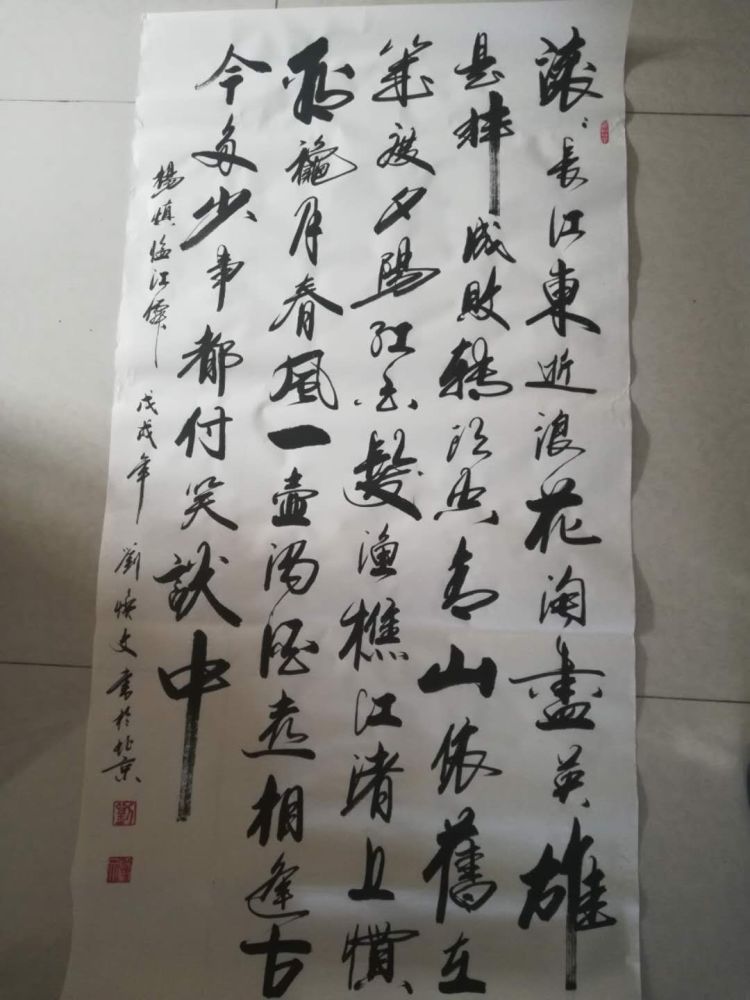 滚〻長江東逝浪花淘盡英雄
是非成敗轉頭空青山依舊在
幾度夕陽紅白髮漁樵江渚上慣
看穐月春風一壺濁酒喜相逢古
今多少事都付笑談中
楊慎臨江僊 戊戌年 劉煥文書於北京